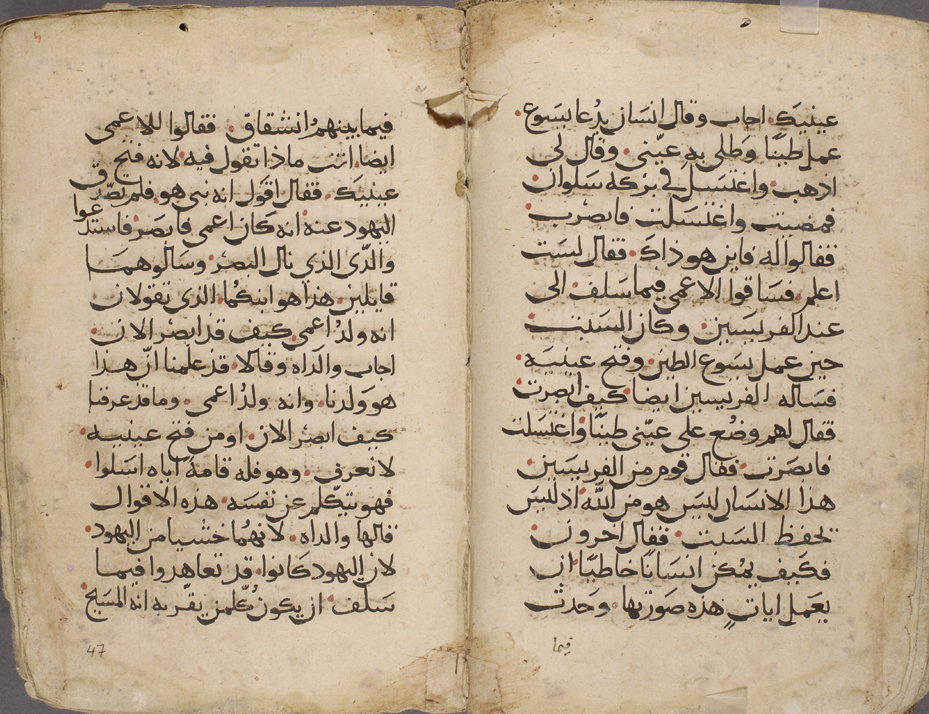 عينيك. اجاب وقال انسان يدعا يسوع.
عمل طينًا وطلى به عينى. وقال لى
اذهب. واغتسل في بركه سلوان.
فمضيت واغتسلت فابصرت.
فقالوا له فاين هو ذاك. فقال لست
اعلم. فساقوا الاعمى فيما سلف الى
عند الفريسين. وكان السبت
حين عمل يسوع الطين. وفتح عينيه.
فساله الفريسين ايضا كيف ابصرت
فقال لهم وضع على عينى طينًا واغتسلت
فابصرت. فقال قوم من الفريسين.
هذا الانسان ليس هو من الله اذ ليس
يحفظ السبت. فقال اخرون
فكيف يمكن انسانًا خاطيًا ان
يعمل ايات هذه صورتها. وحدث
فيما
فيما بينهم انشقاق. فقالوا للاعمى
ايضا انت ماذا تقول فيه. لانه فتح
عينيك. فقال اقول انه نبى هو. فلم تصدق
اليهود عنه انه كان اعمى فابصر. فاستدعوا
والدَى الذي نال البصر. وسالوهما
قايلين. هذا هو ابنكما. الذى تقولان
انه ولد اعمى. كيف قد ابصر الان.
اجاب والداه وقالا. قد علمنا انّ هذا
هو ولدنا. وانه ولد اعمى. وما قد عرفنا
كيف ابصر الان. او من فتح عينيه.
لا نعرف. وهو فله قامة اياه اسلوا.
فهو يتكلم عن نفسه. هذه الاقوال
قالها والداه. لانهما خشيا من اليهود.
لان اليهود كانوا. قد تعاهدوا فيما
سلف. ان يكون كلمن يقر به انه المسيح
47